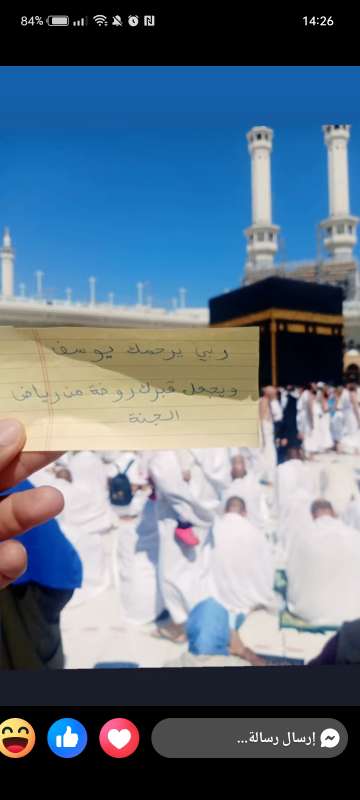 84% 14:26
ربي يرحمك يوسف
ويجعل قبرك روضة من رياض
الجنة
إرسال رسالة...